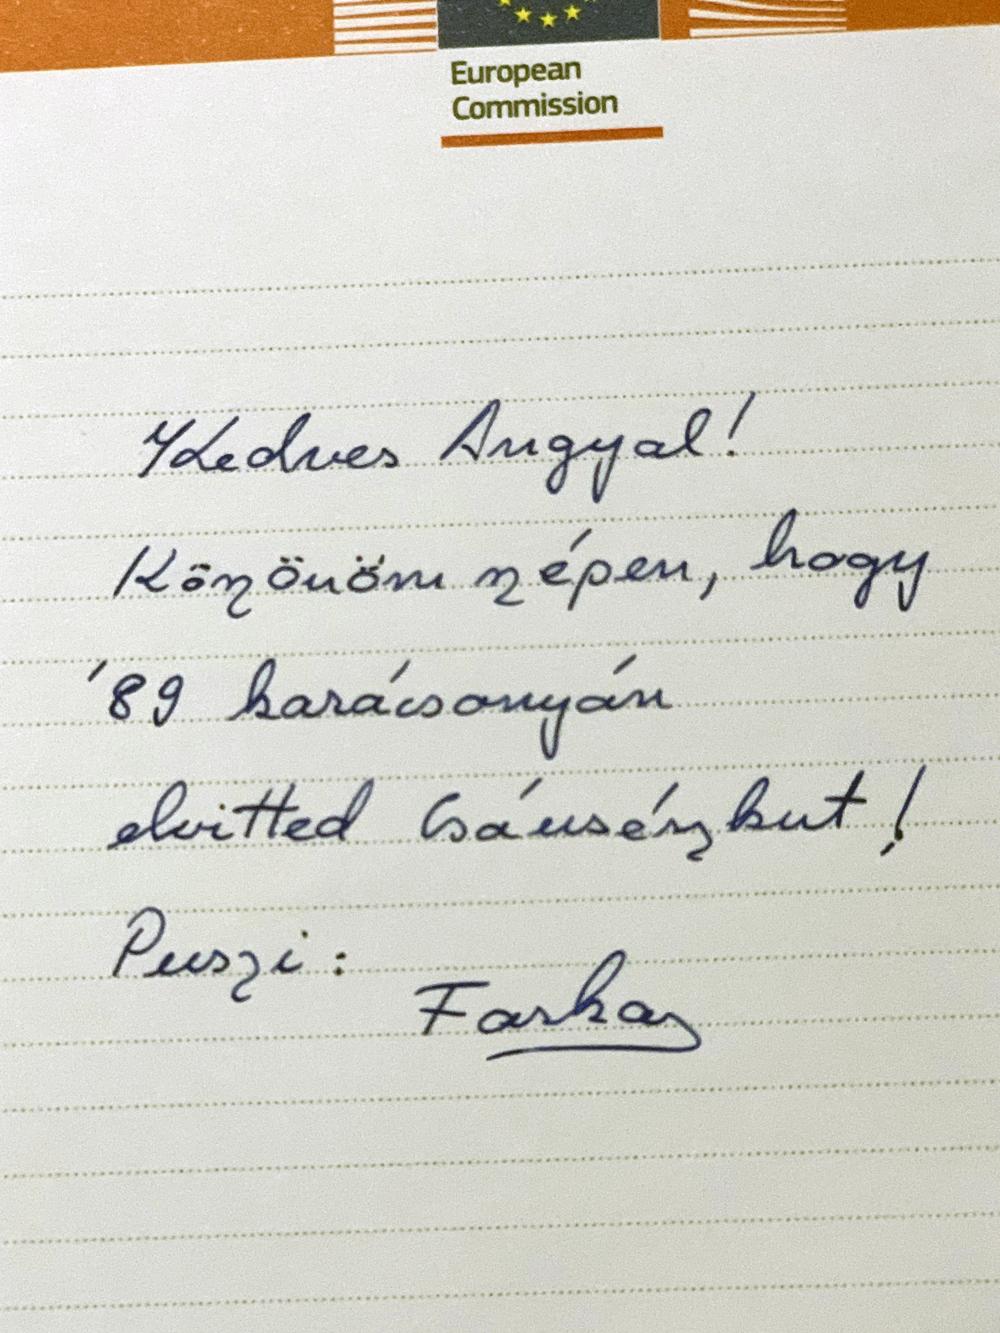 European
Commission
Kedves Angyal!
Közönöm szépen, hogy
'89 karácsonyán
elvitted Csáusészkut!
Puszi:
Farkas